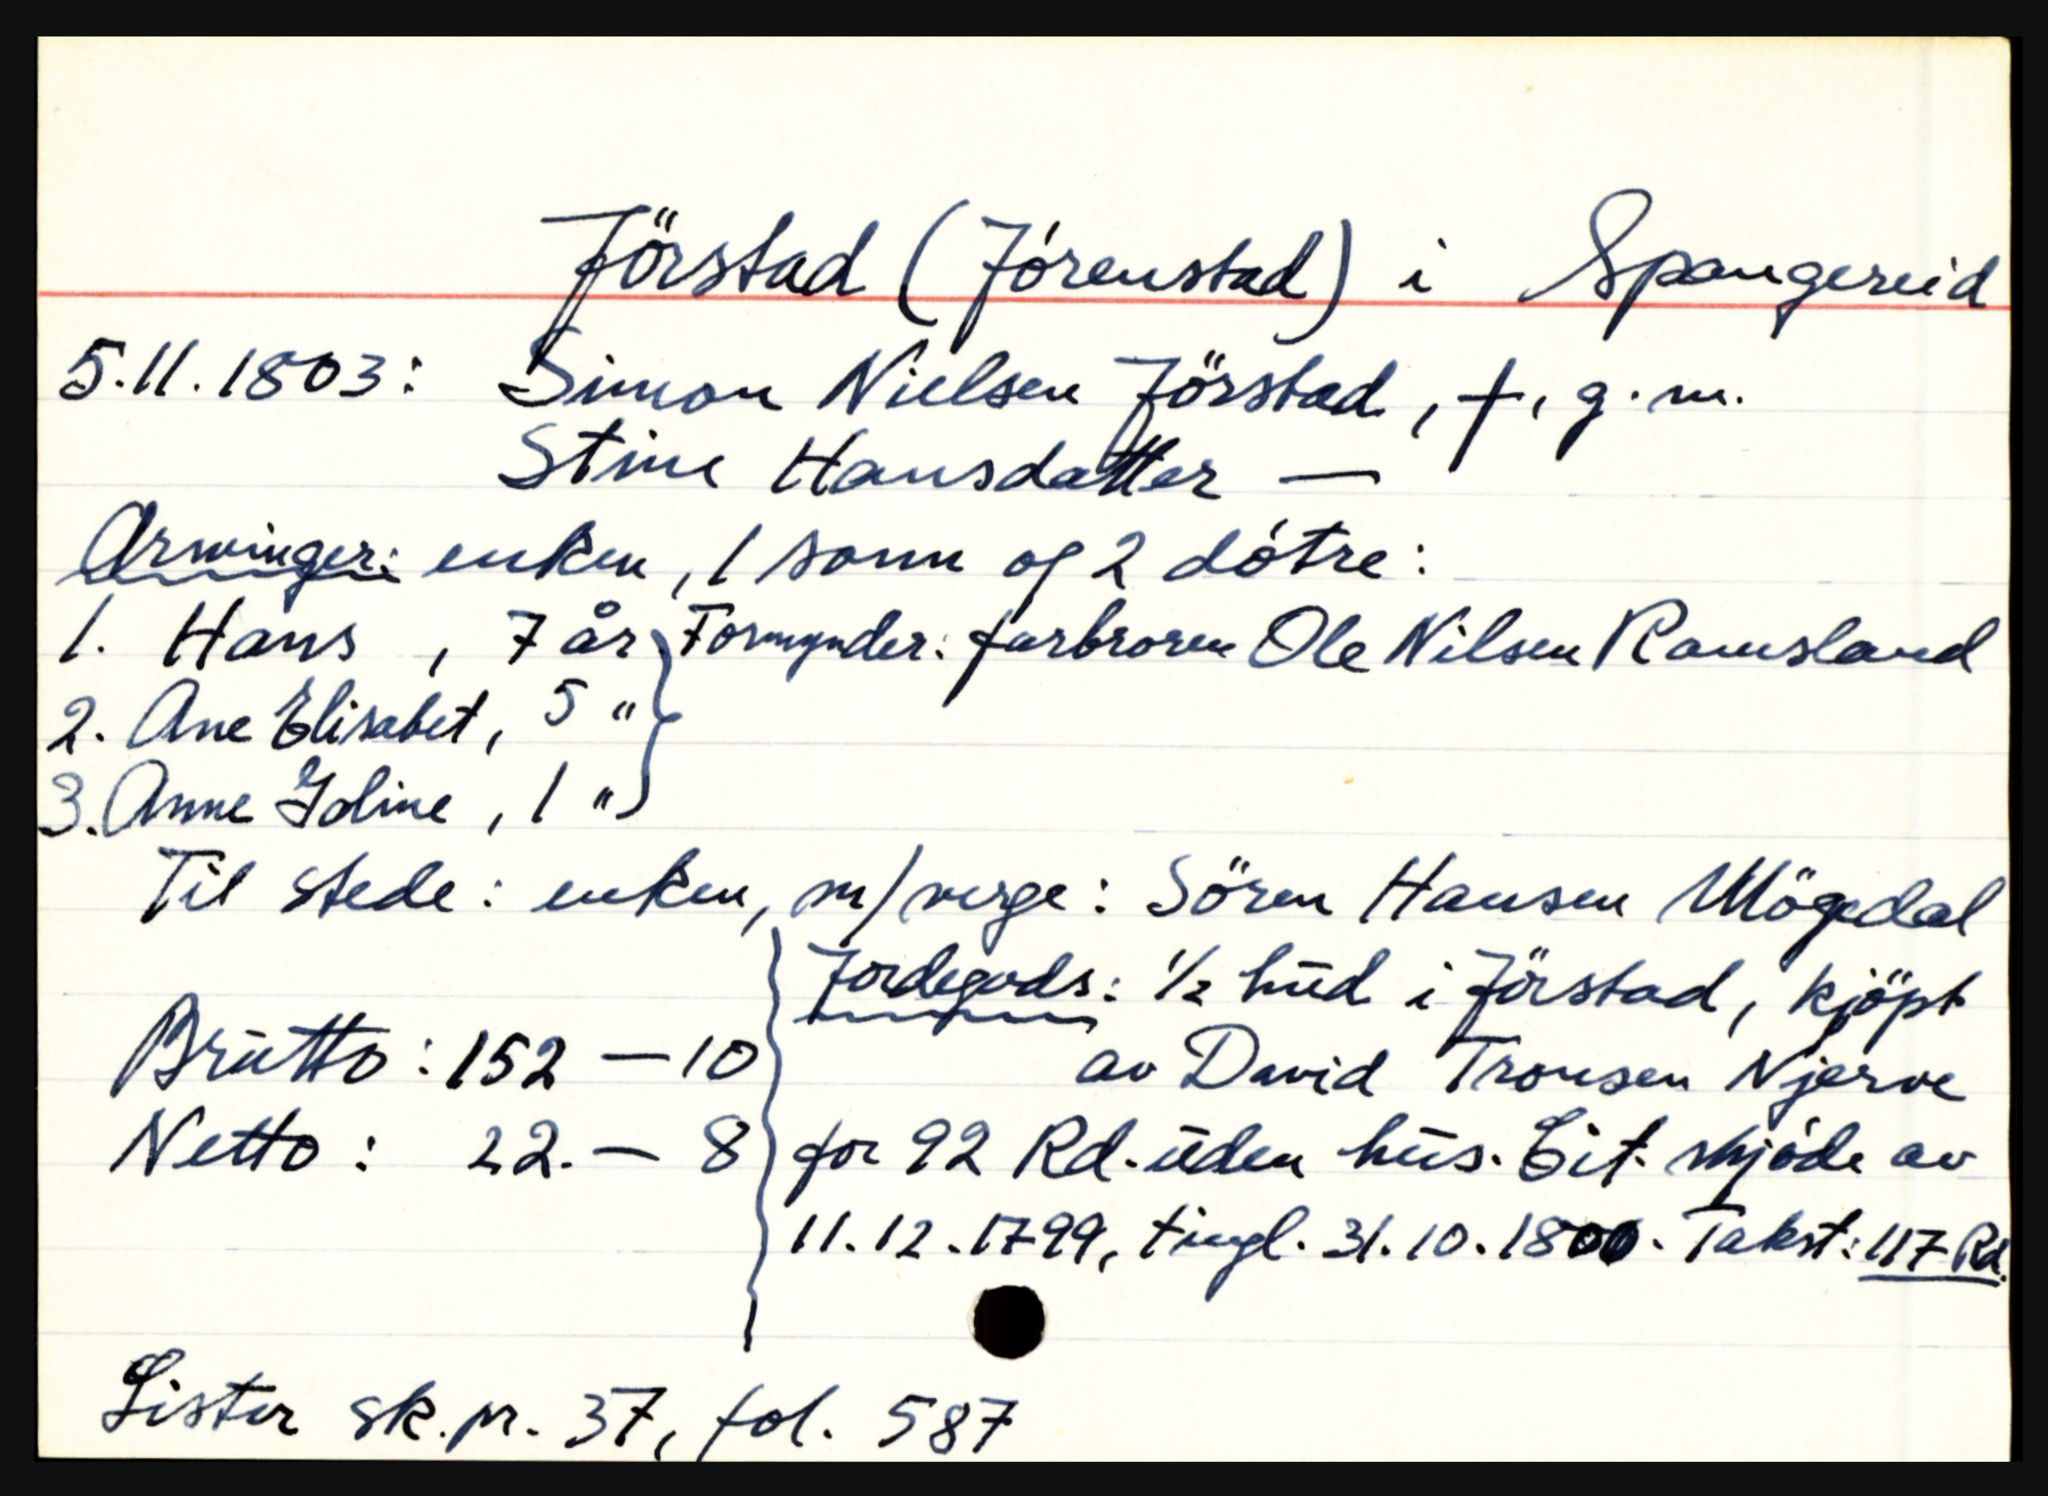 Jörstad (Jórenstad) i Spangereid
5.11.1803: Simon Nielsen Jörstad, †, g.m.
Stine Hansdatter —
Arvinger: enken, 1 sønn og 2 dótre:
1. Hans, 7 år } Formynder: farbroren Ole Nilsen Ramsland
2. Ane Elisabet, 5 "
3. Anne Idine, 1 "
Til stede: enken, m/verge: Sören Hansen Mögedal
Jordegods: 1/2 hud i Jörstad, kjöpt
Brutto: 152 — 10 av David Tronsen Njerve
Netto: 22. — 8 for 92 Rd. uden hus. Cit. skjóde av
11.12.1799, tingl. 31.10.1800. Takst: 117 Rd.
Lister sk.pr. 37, fol. 587